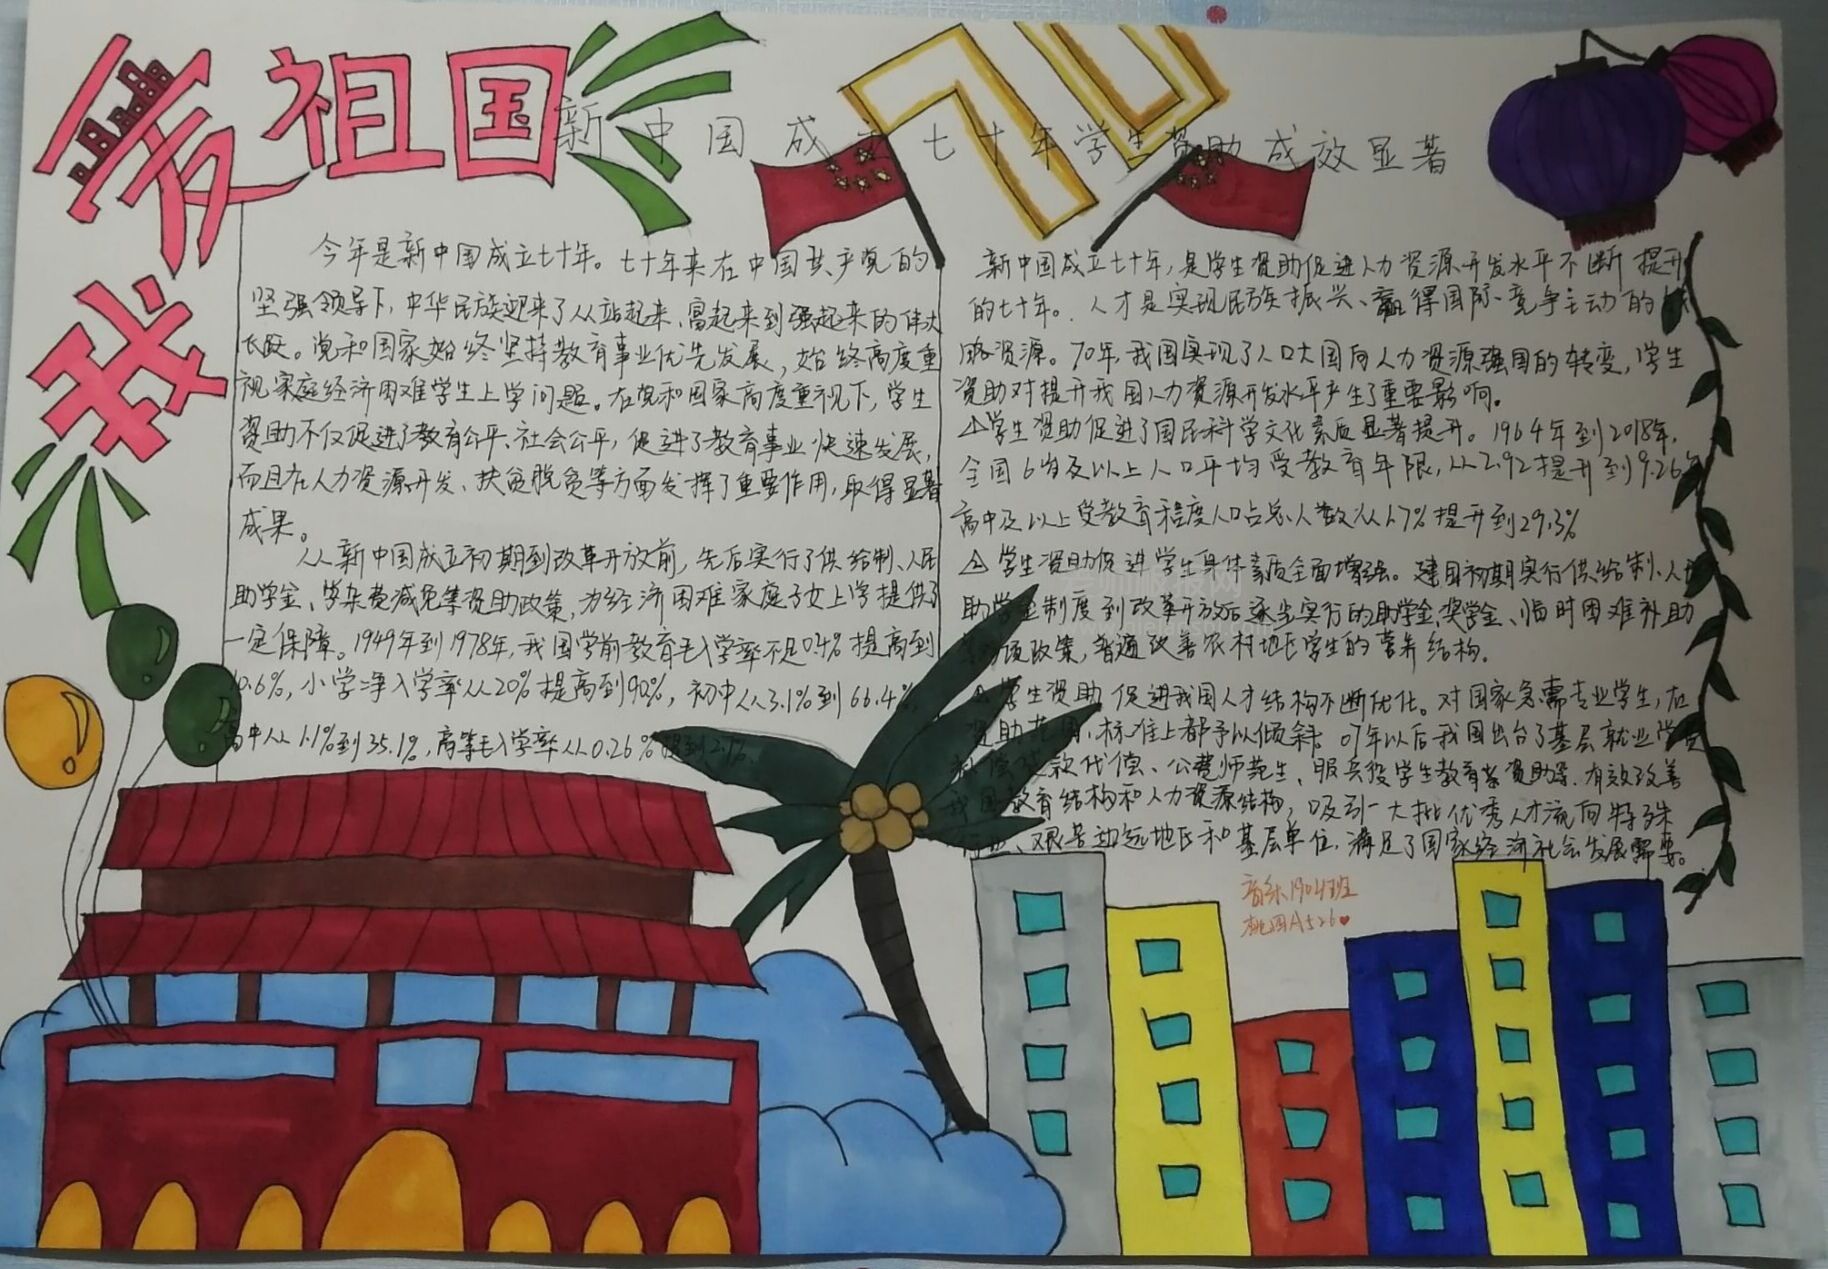 我爱祖国
新中国成立七十年学生资助成效显著
今年是新中国成立七十年。七十年来在中国共产党的
坚强领导下,中华民族迎来了从站起来、富起来到强起来的伟大
飞跃。党和国家始终坚持教育事业优先发展,始终高度重
视家庭经济困难学生上学问题。在党和国家高度重视下,学生
资助不仅促进了教育公平、社会公平,促进了教育事业快速发展,
而且在人力资源开发、扶贫脱贫等方面发挥了重要作用,取得显著
成果。
从新中国成立初期到改革开放前,先后实行了供给制、人民
助学金、学杂费减免等资助政策,为经济困难家庭子女上学提供了
一定保障。1949年到1978年,我国学前教育毛入学率不足0.4%提高到
10.6%,小学净入学率从20%提高到90%,初中从3.1%到66.4%,
高中从1.1%到35.1%,高等毛入学率从0.26%提到2.7%
新中国成立七十年,是学生资助促进人力资源开发水平不断提升
的七十年。人才是实现民族振兴、赢得国际竞争主动的战
略资源。70年,我国实现了人口大国向人力资源强国的转变,学生
资助对提升我国人力资源开发水平产生了重要影响。
△学生资助促进了国民科学文化素质显著提升。1964年到2018年,
全国6岁及以上人口平均受教育年限,从2.92提升到9.26年
高中及以上受教育程度人口占总人数从1.7%提升到29.3%
△学生资助促进学生身体素质全面增强。建国初期实行供给制、人民
助学金制度到改革开放后逐步实行的助学金、奖学金、临时困难补助
等多项政策,普遍改善农村地区学生的营养结构。
△学生资助促进我国人才结构不断优化。对国家急需专业学生,在
资助范围、标准上都予以倾斜。07年以后我国出台了基层就业学费
补偿贷款代偿、公费师范生、服兵役学生教育资助等,有效改善
我国教育结构和人力资源结构,吸引一大批优秀人才流向特殊
行业、艰苦边远地区和基层单位,满足了国家经济社会发展需要。
音乐1904班
桃园A526